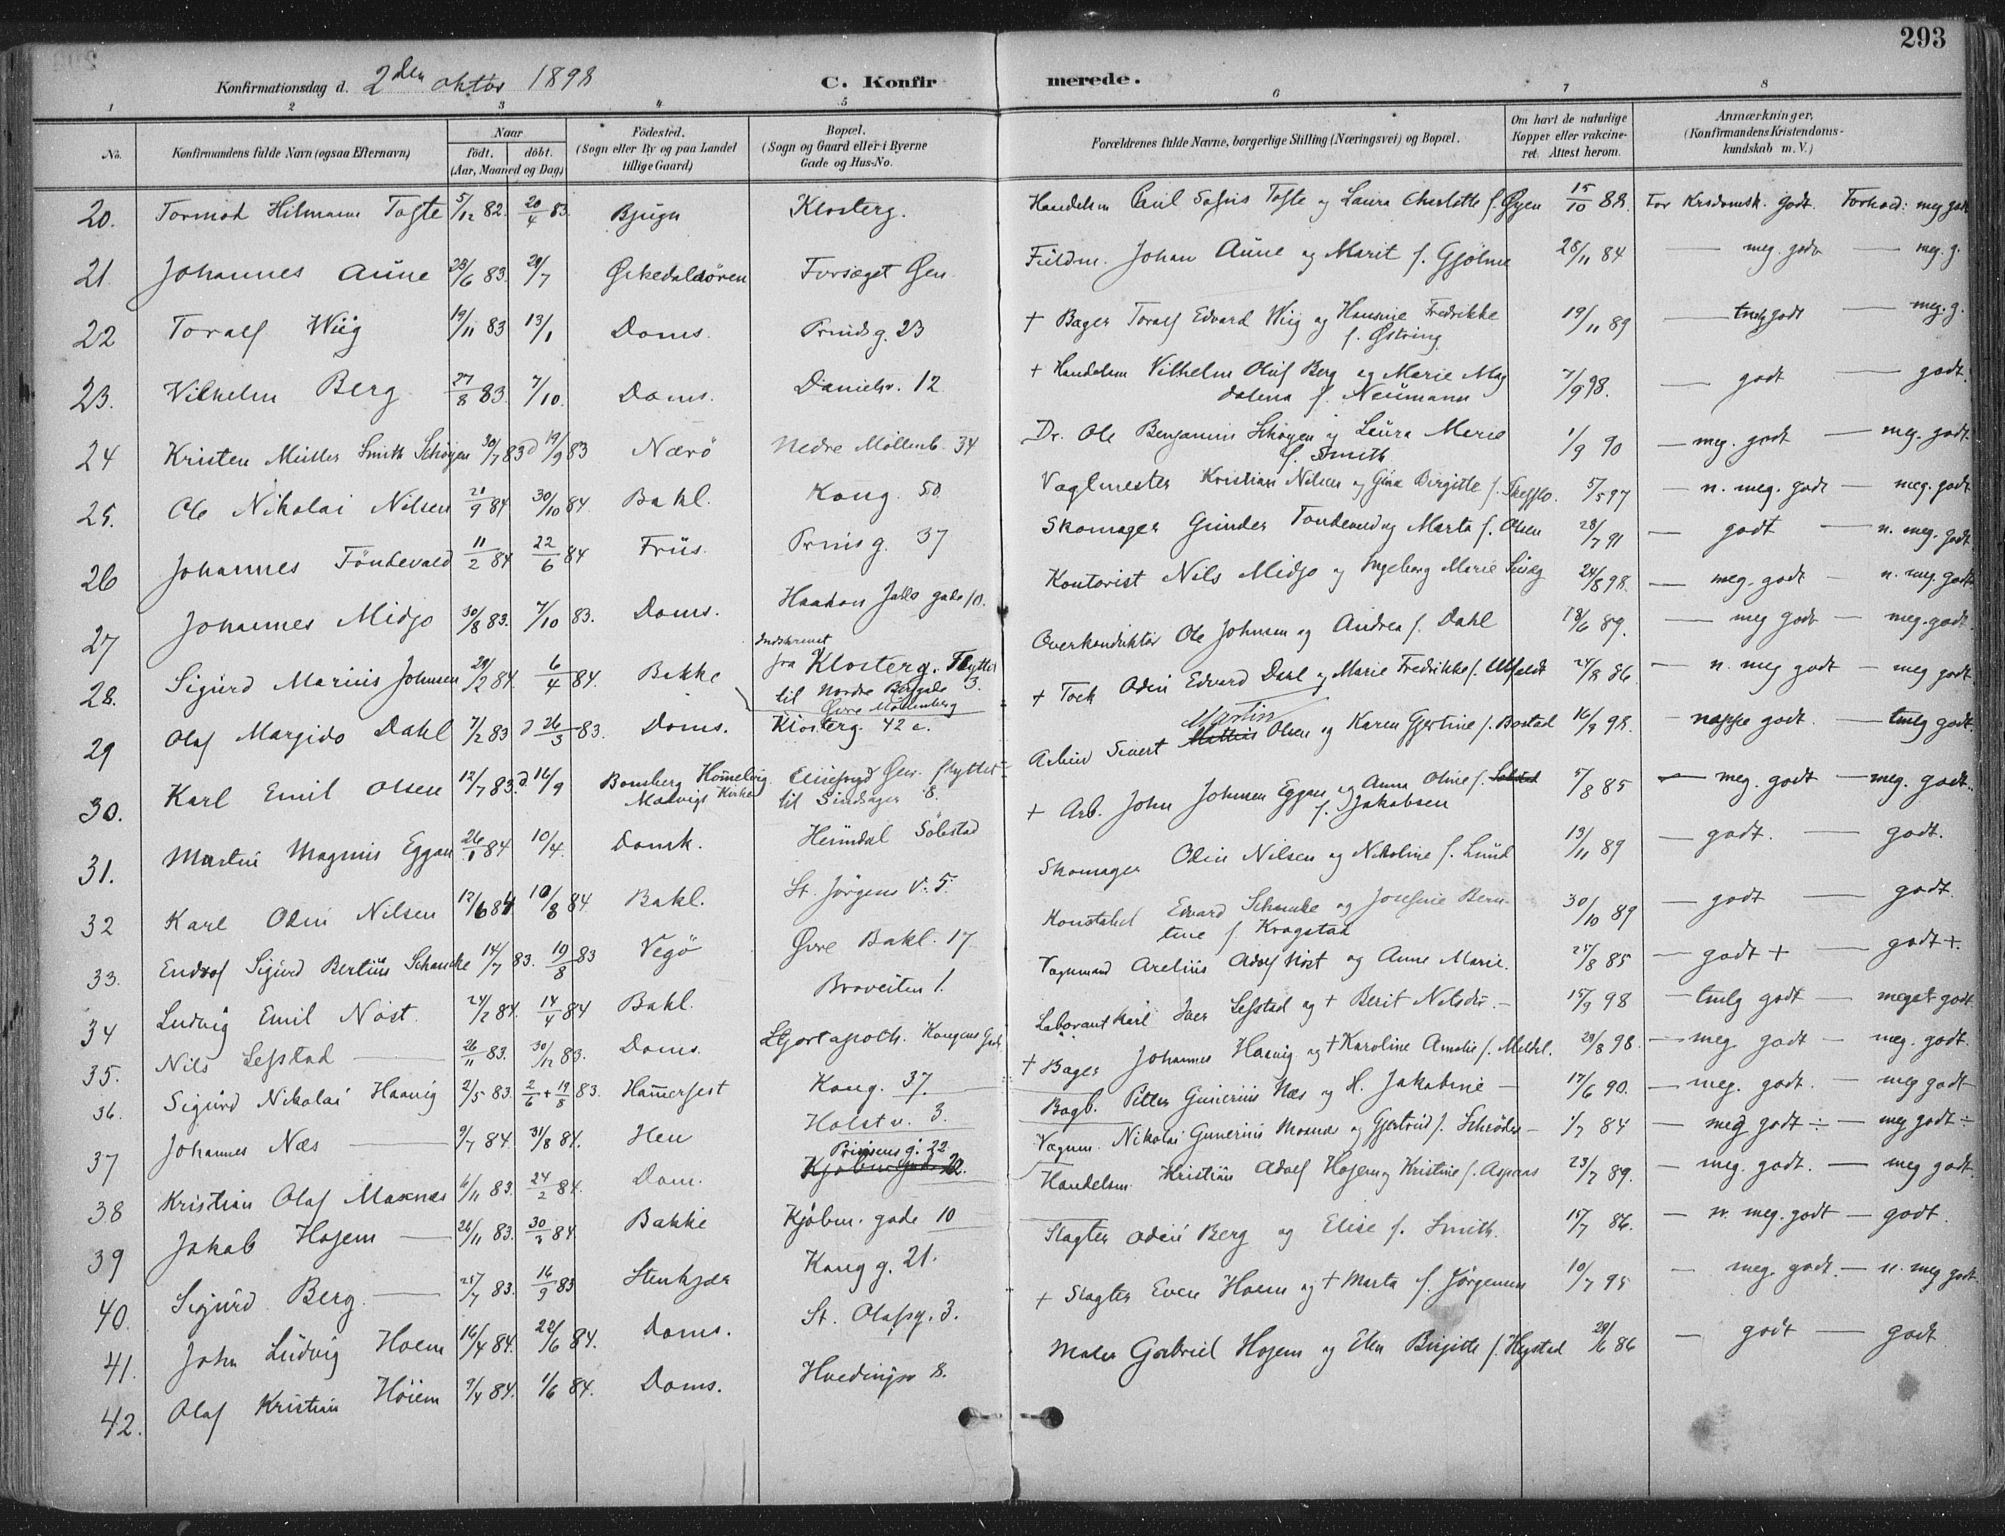 293
Konfirmationsdag d. 2den oktor 1898 C. Konfirmerede.
1 2 3 4 5 6 7 8
No. Konfirmandens fulde Navn (ogsaa Efternavn) Naar født. døbt. (Aar, Maaned og Dag) Fødested. (Sogn eller By og paa Landet tillige Gaard) Bopæl. (Sogn og Gaard eller i Byerne Gade og Hus-No. Forældrenes fulde Navne, borgerlige Stilling (Næringsvei) og Bopæl. Om havt de naturlige Kopper eller vakcineret. Attest herom. Anmærkninger, (Konfirmandens Kristendomskundskab m. V.)
20. Tormod Hilmann Tofte 5/12 82. 20/4 83. Bjugn Klosterg. Handelsm Paul Tofte og Laura Charlotte f. Øyen 15/10 88. For Krsdomsk. godt. Forhold: meg godt
21 Johannes Aune 28/6 83. 29/7 Ørkedalsören Forsøget Øen Fieldm. Johan Aune og Marit f. Gjölme 28/11 84 — meg. godt — meg. g.
22 Toralf Wiig 19/11 83 13/1 Doms. Prindsg. 23 + Bager Toralf Edvard Wiig og Hansine Fredrikke f. Østring 19/11 89 — godt — meg. g.
23. Vilhelm Berg 27/8 83. 7/10. Doms. Danielsv. 12 + Handelsm Vilhelm Oluf Berg og Marie Magdalena f. Neumann 7/9 98. — godt — godt.
24 Kristen Müller Smith Schöyen 30/7 83 d 19/9 83 Nærö Nedre Möllenb. 34 Dr. Ole Benjamin Schöyen og Laura Marie f. Smith 1/9 90 — meg. godt — meg. godt.
25. Ole Nikolai Nilsen 21/9 84 30/10 84. Bakl. Kong. 50. Vaglmester Kristian Nilsen og Gina Birgitte f. 5/5 97 — n. meg. godt — meg. godt
26 Johannes Töndevold 11/2 84. 22/6 84 Friis. Prinsg. 37 Skomager Gunder Töndevold og Marta f. Olsen 28/7 91 — godt — n. meg. godt
27 Johannes Midjo 30/8 83. 7/10 83. Doms. Haakon Jarls gade 10. Kontorist Nils Midjo og Ingeborg Marie 24/8 98. — meg. godt — n. meg. godt
28. Sigurd Marius Johnsen 29/2 84. 6/4 84. Bakke Indskrevet fra Klosterg. Flyttet til Nordre Berggade 3. Øvre Möllenberg Overkonduktör Ole Johnsen og Andrea f. Dahl 18/6 89. — meg godt — meg. godt.
29 Olaf Margido Dahl 7/2 83 d 26/3 83. Doms. Klosterg. 42 c. + Toch Odin Edvard Dahl og Marie Fredrikke f. 24/8 86. — n. meg godt — meg godt.
30. Karl Emil Olsen 12/7 83. d. 16/9 Hommelvig Malvigs Kirke Gen. flyttet til 8. Arbeid Sivert Martin Olsen og Karen Gjertine f. Bostad 16/9 98. — noppe godt. — tmlg godt.
31. Martin Magnus Eggan 26/1 84 10/4. Domk. Heimdal Sölestad + Arb. John Johnsen Eggan og Anna Oline f. Jakobsen 5/8 85 — meg. godt — meg. godt.
32 Karl Odin Nilsen 12/6 84 10/8 84 Bakl. St. Jörgens v. 5. Skomager Odin Nilsen og Nikoline f. Lund 13/11 89 — godt. — godt.
33. Sigurd Bertius Schancke 14/7 83. 19/8 83 Vegö Øvre Bakl. 17. Konstabel Edvard Schancke og Josefine Berntine f. Krogstad 30/10 89 — godt — godt.
34 Ludvig Emil Nöst. 24/2 84. 14/4 84 Bakl. Braveiten 1. Vognmand Arelius Adolf Nöst og Anne Marie. 25/8 85 — godt + — godt +.
35. Nils Lefstad — 26/11 83. 30/12 83. Doms. Hjortapoth. Kongens Gade Laborant Karl Iver Lefstad og + Berit Nilsdtr. — 15/9 98 — tmlg godt — meget godt.
36. Sigurd Nikolai Haavig 2/5 83. 2/6 + 19/8 83. Hamerfest Kong. 37. + Bager Johannes Haavig og + Karoline Amalie f. 29/8 98. — meg godt — meg. godt.
37 Johannes Næs — 9/7 84. 31/8 84. Hen Holst v. 3. Bogb. Petter Gunerius Næs og H. Jakobine — 17/6 90. — meg. godt. — meg godt
38 Kristian Olaf Mosnæs 6/11 83. 24/2 84. Dom. Prinsens g. 22 Kjöbm. gade 22. Vognm. Nikolai Gunerius Mosnæs og Gjertrud f. Schröder — 1/7 84 — meg godt ÷ — meg godt ÷
39 Jakob Hojem — 26/11 83. 30/3 84. Bakke Kjöbm. gade 10 Handelsm Kristian Adolf Hojem og Kristine f. Aspaas 23/7 89. — meg. godt. — meg godt
40. Sigurd Berg. — 25/7 83. 16/9 83 Stenkjær Kong g. 21. Slagter Odin Berg og Elise f. Smith. 15/7 86. — n. meg. godt — godt.
41. John Ludvig Hoem 16/4 84. 22/6 84. Doms. St. Olafsg. 3. + Slagter Even Hoem og + Marta f. Jörgensen 10/7 95 — meg. godt. — n. meg godt
42. Olaf Kristian Höiem 9/4 84. 1/6 84. Doms. Hvedingsv 8. Maler Gabriel Hojem og Elen Birgitte f. Hegstad 29/6 86 — godt — godt